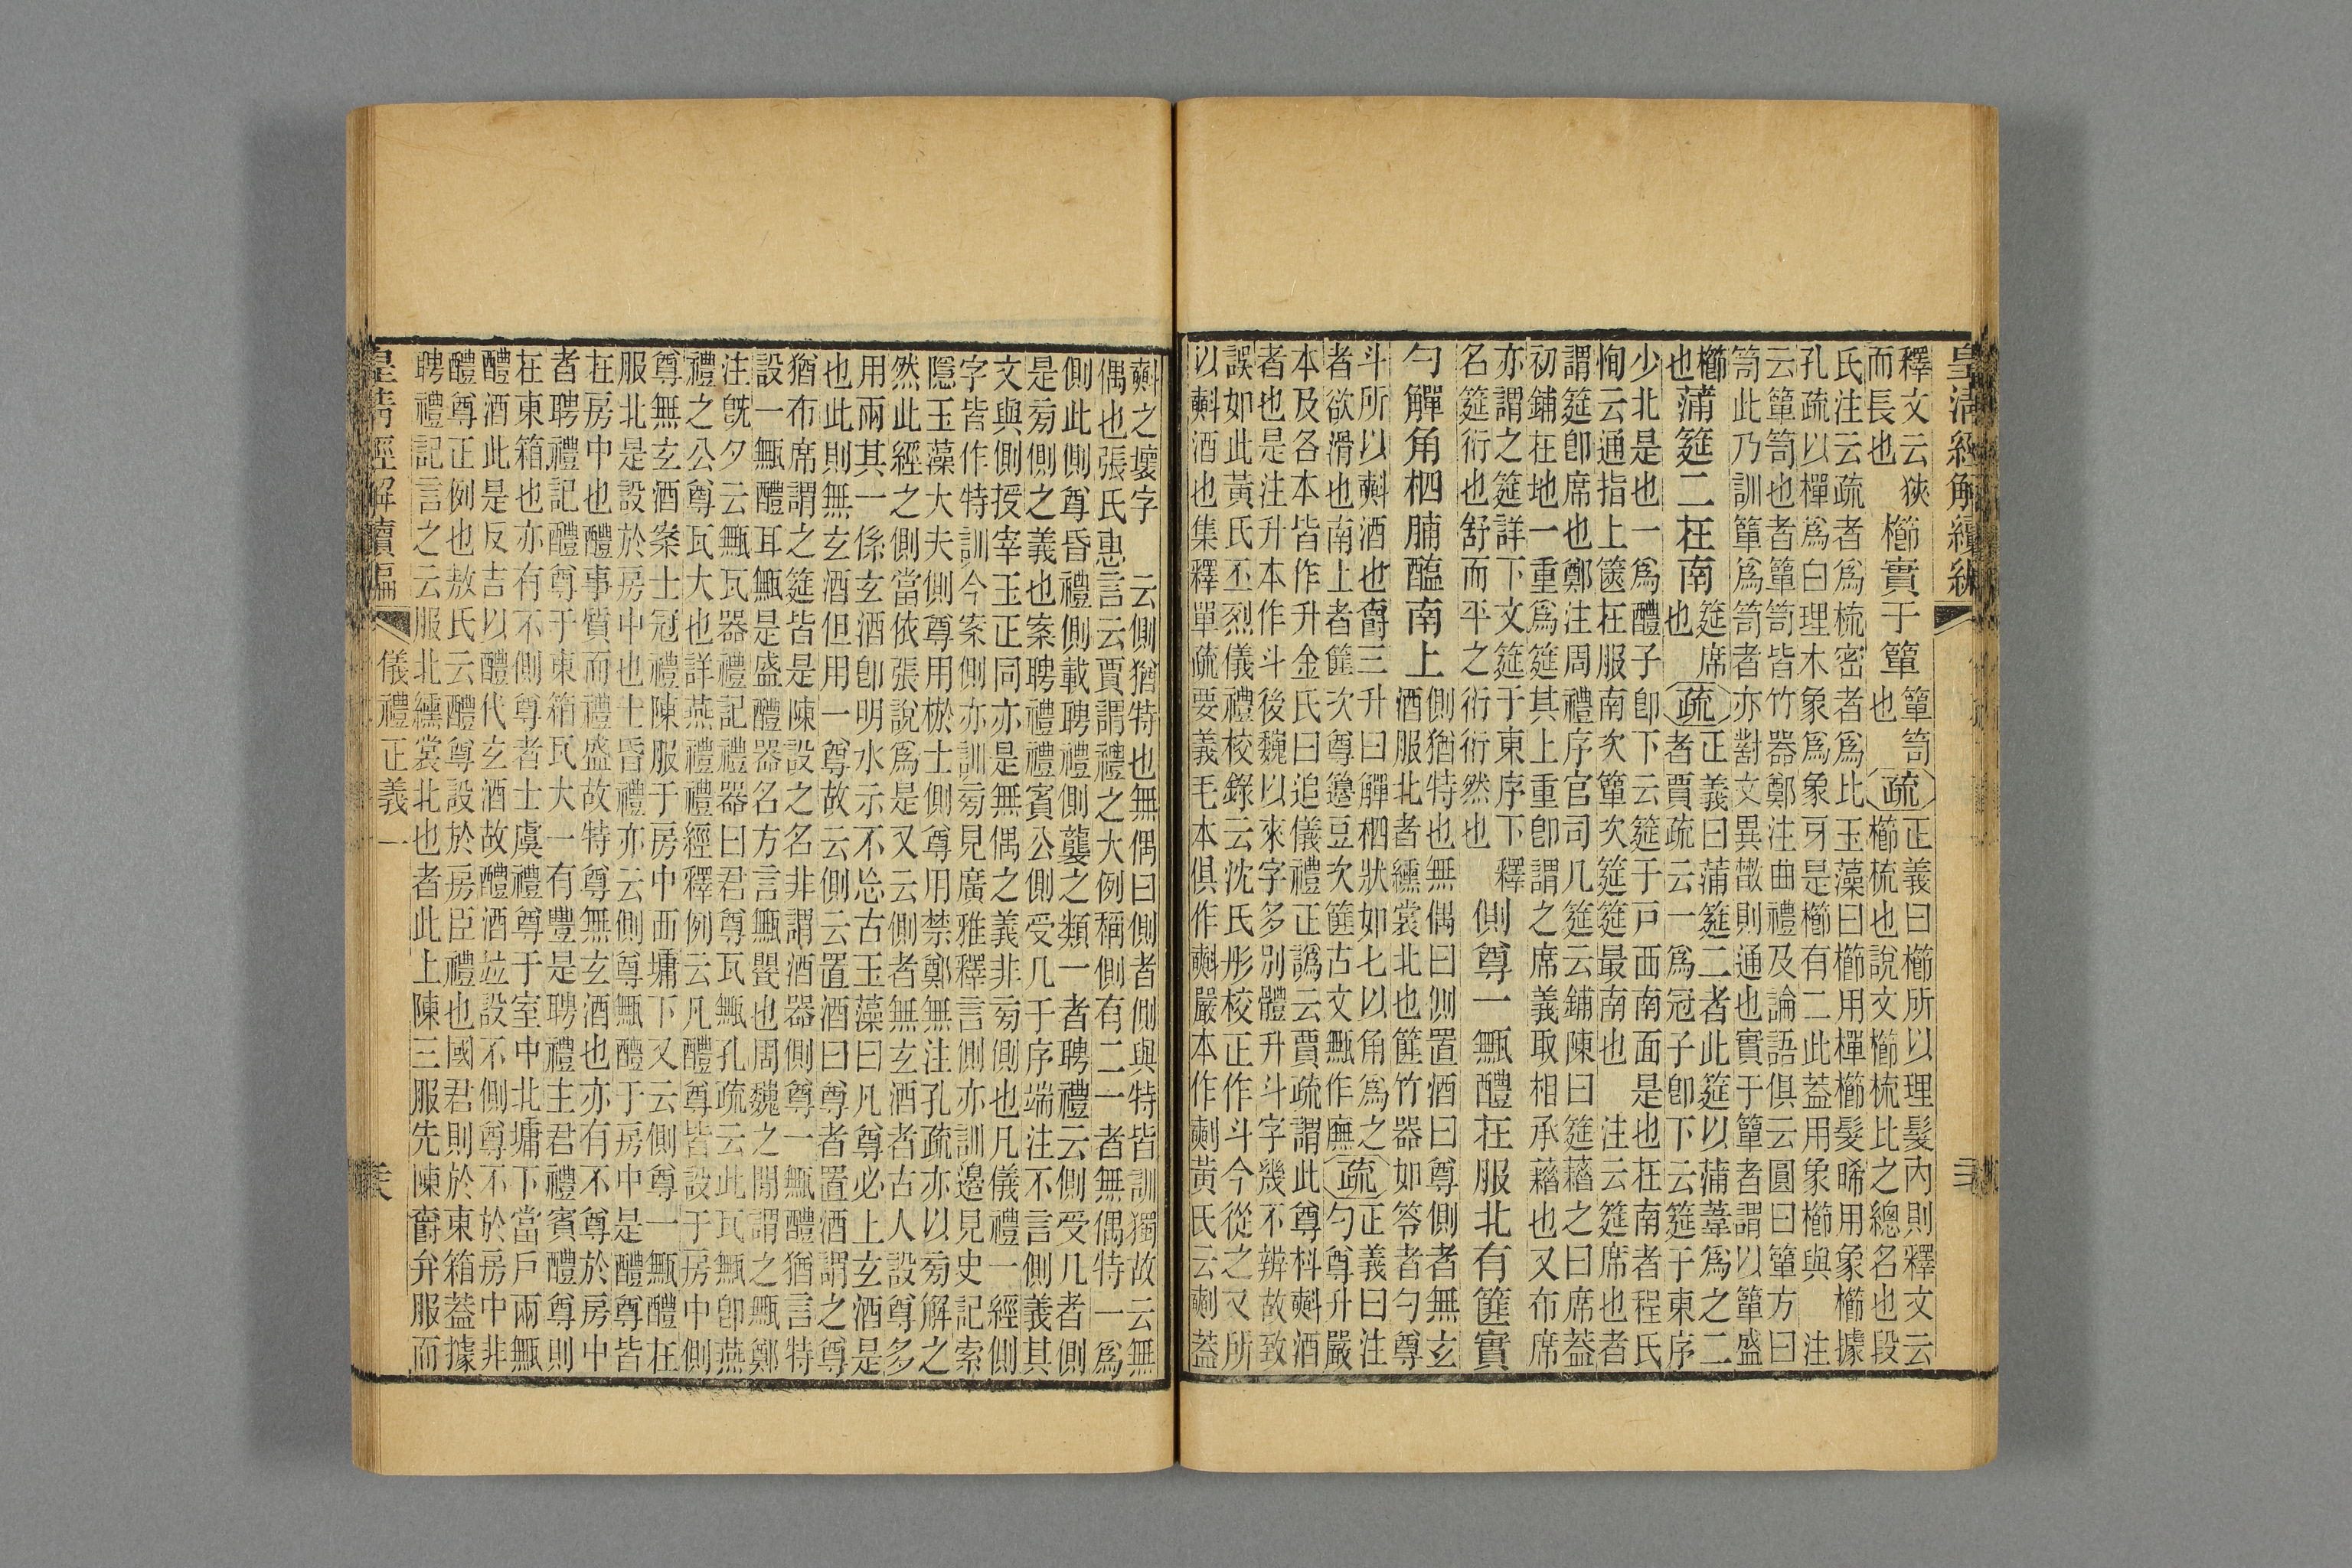 皇清經解續編
釋文云狹
而長也
櫛實于簞
簞笥
也
疏
正義曰櫛所以理髮內則釋文云
櫛梳也說文櫛梳比之總名也段
氏注云疏者爲梳密者爲比玉藻曰櫛用樿櫛髮晞用象櫛據
孔疏以樿爲白理木象爲象牙是櫛有二此蓋用象櫛與　注
云簞笥也者簞笥皆竹器鄭注曲禮及論語俱云圓曰簞方曰
笥此乃訓簞爲笥者亦對文異㪚則通也實于簞者謂以簞盛
櫛
也
蒲筵二在南
筵席
也
疏
正義曰蒲筵二者此筵以蒲葦爲之二
者賈疏云一爲冠子卽下云筵于東序
少北是也一爲醴子卽下云筵于戶西南面是也在南者程氏
恂云通指上篋在服南次簞次筵筵最南也　注云筵席也者
謂筵卽席也鄭注周禮序官司几筵云鋪陳曰筵藉之曰席蓋
初鋪在地一重爲筵其上重卽謂之席義取相承藉也又布席
亦謂之筵詳下文筵于東序下　釋
名筵衍也舒而平之衍衍然也
側尊一甒醴在服北有篚實
勺觶角柶脯醢南上
側猶特也無偶曰側置酒曰尊側者無玄
酒服北者纁裳北也篚竹器如笭者勺尊
斗所以㪺酒也爵三升曰觶柶狀如匕以角爲之
者欲滑也南上者篚次尊籩豆次篚古文甒作廡
疏
正義曰注
勺尊升嚴
本及各本皆作升金氏曰追儀禮正譌云賈疏謂此尊枓㪺酒
者也是注升本作斗後魏以來字多別體升斗字幾不辨故致
誤如此黃氏丕烈儀禮校錄云沈氏彤校正作斗今從之又所
以㪺酒也集釋單疏要義毛本俱作㪺嚴本作黃氏云蓋
㪺之壞字　云側猶特也無偶曰側者側與特皆訓獨故云無
偶也張氏惠言云賈謂禮之大例稱側有二一者無偶特一爲
側此側尊昏禮側載聘禮側襲之類一者聘禮云側受几者側
是旁側之義也案聘禮禮賓公側受几于序端注不言側義其
文與側授宰玉正同亦是無偶之義非旁側也凡儀禮一經側
字皆作特訓今案側亦訓旁見廣雅釋言側亦訓邊見史記索
隱玉藻大夫側尊用棜士側尊用禁鄭無注孔疏亦以旁解之
然此經之側當依張說爲是又云側者無玄酒者古人設尊多
用兩其一係玄酒卽明水示不忘古玉藻曰凡尊必上玄酒是
也此則無玄酒但用一尊故云側云置酒曰尊者置酒謂之尊
猶布席謂之筵皆是陳設之名非謂酒器側尊一甒醴猶言特
設一甒醴耳甒是盛醴器名方言甒甖也周魏之閒謂之甒鄭
注旣夕云甒瓦器禮記禮器曰君尊瓦甒孔疏云此瓦甒卽燕
禮之公尊瓦大也詳燕禮禮經釋例云凡醴尊皆設于房中側
尊無玄酒案士冠禮陳服于房中西墉下又云側尊一甒醴在
服北是設於房中也士昏禮亦云側尊甒醴于房中是醴尊皆
在房中也醴事質而禮盛故特尊無玄酒也亦有不尊於房中
者聘禮記醴尊于東箱瓦大一有豐是聘禮主君禮賓醴尊則
在東箱也亦有不側尊者士虞禮尊于室中北墉下當戶兩甒
醴酒此是反吉以醴代玄酒故醴酒竝設不側尊不於房中非
醴尊正例也敖氏云醴尊設於房臣禮也國君則於東箱蓋據
聘禮記言之云服北纁裳北也者此上陳三服先陳爵弁服而
皇清經解續編
儀禮正義一